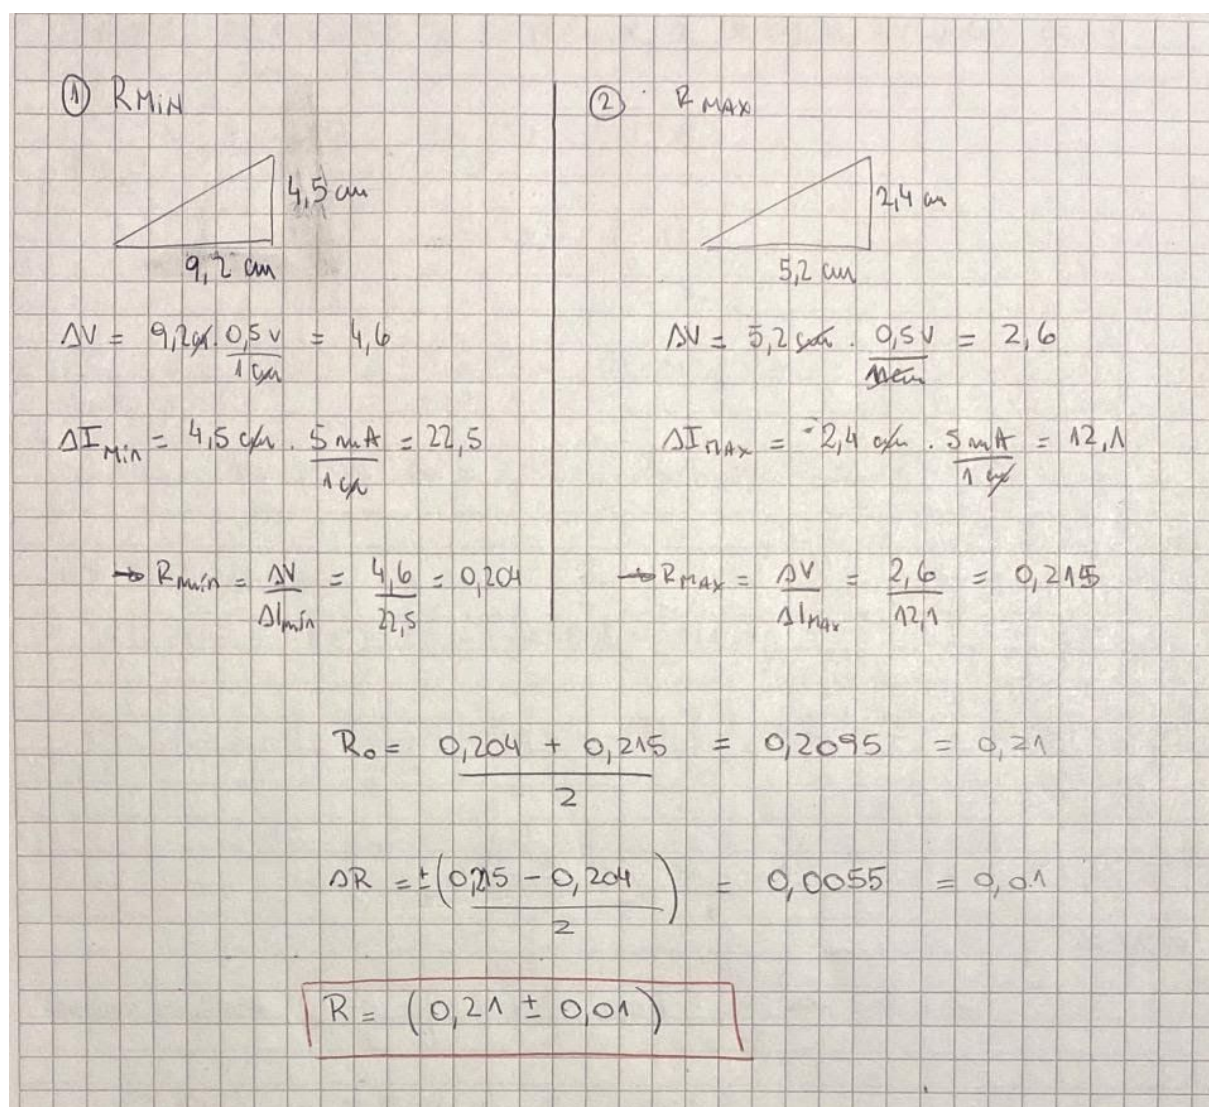 ① RMIN
4,5 cm
9,2 cm
ΔV = 9,2cm · 0,5 V / 1 cm = 4,6
ΔI Min = 4,5 cm · 5 mA / 1 cm = 22,5
→ R mín = ΔV / ΔI mín = 4,6 / 22,5 = 0,204
② R MAX
2,4 cm
5,2 cm
ΔV = 5,2 cm · 0,5V / 1 cm = 2,6
ΔI MAX = 2,4 cm · 5 mA / 1 cm = 12,1
→ R MAX = ΔV / ΔI MAX = 2,6 / 12,1 = 0,215
R₀ = 0,204 + 0,215 / 2 = 0,2095 = 0,21
ΔR = ±(0,215 - 0,204 / 2) = 0,0055 = 0,01
R = (0,21 ± 0,01)